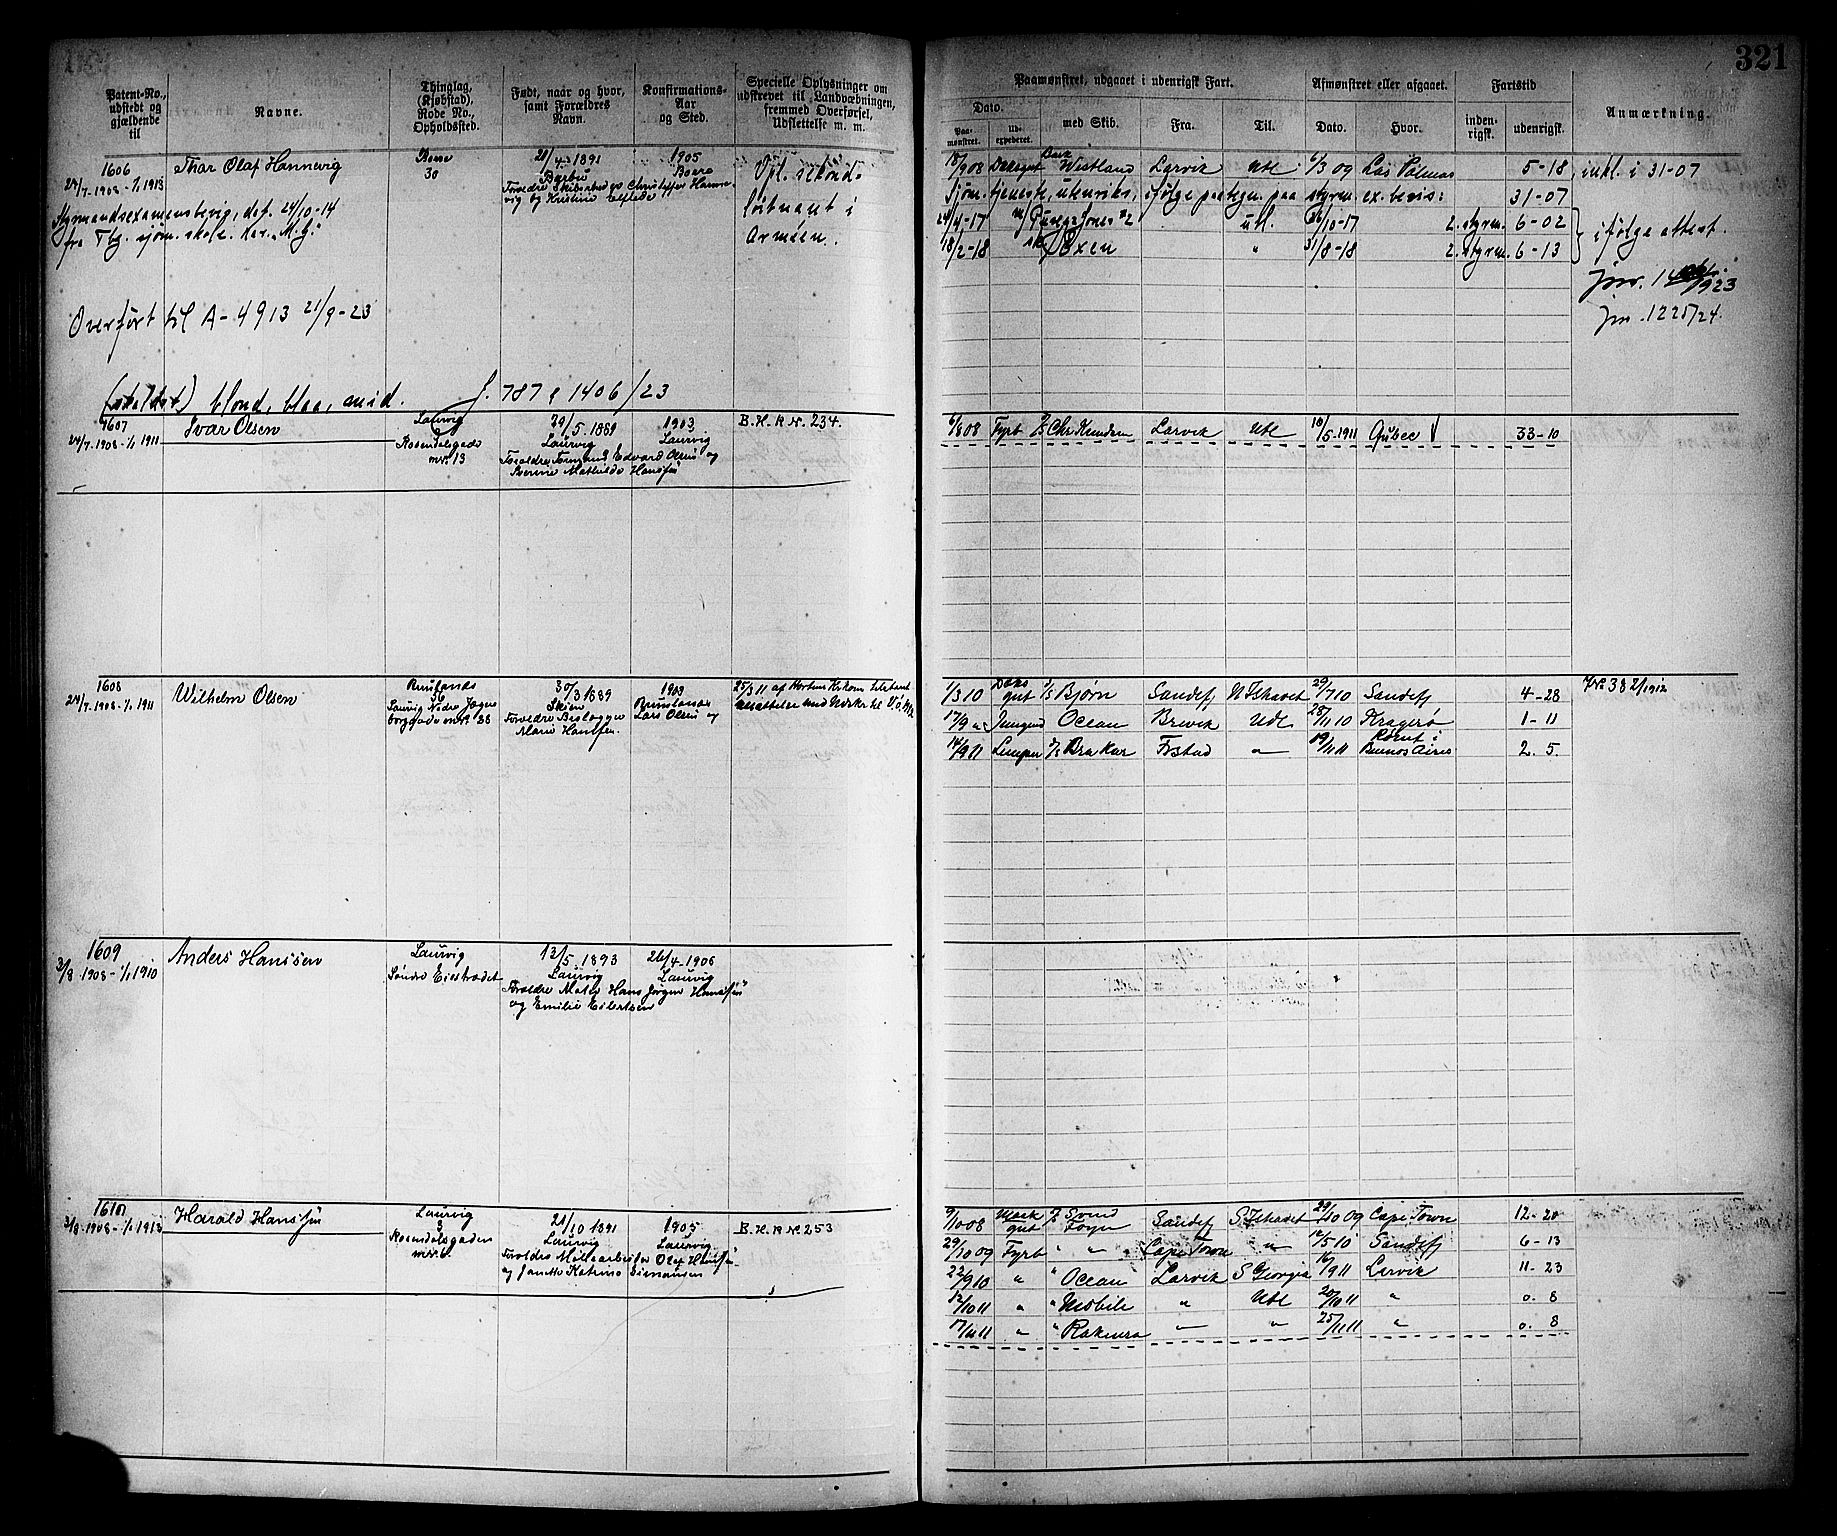 321
Patent-No., udstedt og gjældende til
Navne.
Thinglag, (Kjøbstad). Rode No., Opholdssted.
Født, naar og hvor, samt Forældres Navn.
Konfirmations-Aar og Sted.
Specielle Oplysninger om udskrevet til Landværbningen, fremmed Overførsel, Udslettelse m. m.
Paamønstret, udgaaet i udenrigsk Fart.
Afmønstret eller afgaaet.
Fartstid
Anmærkning.
Dato.
Paa-mønstret.
ud-expederet.
med Skib.
Fra.
Til.
Dato.
Hvor.
inden-rigsk.
udenrigsk.
1606
24/7.1908-1/1 1913
Thor Olaf Hannevig
Borre
30
21/4 1891
Barbu
Forældre Skibsreder Christoffer Hanne-
vig og Kristine Elfleda
1905
Boero
Vpl. sekond-
løitnant i
Armeen.
Styrmandsexamensbevis, dat. 24/10-14
fra Tbg. sjøm. skole. Kar. "M.G."
Overført til A-4913 21/9-23
(skaldet) blond, blaa, mid.
J. 787 & 1406/23
18/9 08 Deksgut Bark Westland Larvik Utl 6/3 09 Las Palmas 5-18, inkl. i 31-07
Sjøm. tjeneste, utenriks, ifølge paategn. paa styrm. ex. bevis: 31-07
24/4-17 utl. 26/10-17 2. styrm. 6-02
18/2-18 Exen " 31/8-18 2. styrm. 6-13
ifølge attest.
1923
jnr. 1225/24.
1607
24/7.1908-1/1 1911
Ivar Olsen
Laurvig
2
Rosendalsgade
nr. 13
29/5.1889
Laurvig
Forældre Formand Edvard Olsen og
Severine Mathilde Hanssen
1903
Laurvig
B.H.R.N. 234.
6/8 08 Fyrb D/S Chr. Knudsen Larvik Utl 18/5.1911 Qubec 33-10
1608
24/7.1908-1/1 1911
Wilhelm Olsen
Brunlanes
56
Laurvig Nedre Jegers
borggade nr. 38
30/3 1889
Skien
Forældre Besloger
Marie Hanssen.
1903
Brunlanes
Lars Olsen og
25/3 11 af Horten
1/3 10 Dæks gut D/S Bjørn Sandefj N Ishavet 29/7 10 Sandefj 4-28
No 382/1912
17/9 " Jungmd Ocean Brevik Utl 28/11 10 Kragerø 1-11
14/9 11 Lemper D/S Bra Kar Frstad " 19/11 11 Rømt i Buenos Aires 2. 5.
1609
3/8.1908-1/1 1910
Anders Hanssen
Laurvig
Søndre
13/5.1893
Laurvig
Forældre Mater Hans Jørgen Hanssen
og Emilie Eilertsen
26/4-1908
Laurvig
1610
3/8.1908-1/1 1913
Harald Hanssen
Laurvig
3
Rosendalsgaden
nr. 6
21/10 1891
Laurvig
Forældre Møllearbeider Olaf Hanssen
og Janette Katrine Simonsen
1905
Laurvig
B.H.R.N. 253
9/10 08 Mæk gut D/S Svend Foyn Sandefj S Ishavet 29/10 09 Cape Town 12-20
29/10 09 Fyrb " " Cape Town " 12/5 10 Sandefj 6-13
22/9 10 " " Ocean Larvik S Georgia 16/9 11 Larvik 11-23
12/10 11 " " Mobile " Utl 20/10 11 " 0. 8
17/11 11 " " Rakura " " 25/11 11 " 0. 8